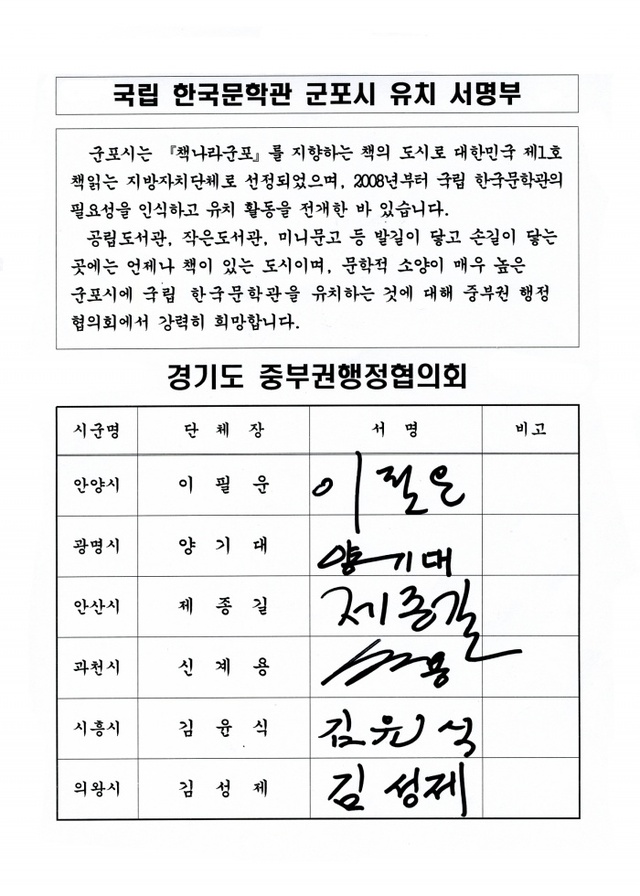 국립 한국문학관 군포시 유치 서명부
군포시는 『책나라군포』를 지향하는 책의 도시로 대한민국 제1호
책읽는 지방자치단체로 선정되었으며, 2008년부터 국립 한국문학관의
필요성을 인식하고 유치 활동을 전개한 바 있습니다.
공립도서관, 작은도서관, 미니문고 등 발길이 닿고 손길이 닿는
곳에는 언제나 책이 있는 도시이며, 문학적 소양이 매우 높은
군포시에 국립 한국문학관을 유치하는 것에 대해 중부권 행정
협의회에서 강력히 희망합니다.
경기도 중부권행정협의회
시군명 단 체 장 서 명 비고
안양시 이 필 운 이필운
광명시 양 기 대 양기대
안산시 제 종 길 제종길
과천시 신 계 용 용
시흥시 김 윤 식 김윤식
의왕시 김 성 제 김성제